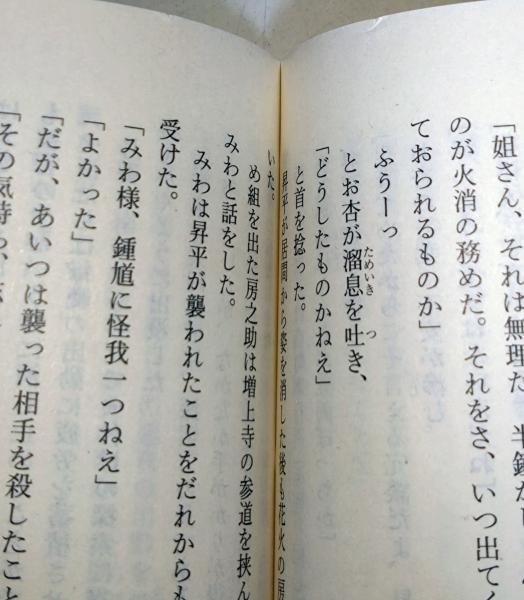 「姐さん、それは無理だ。半鐘が
のが火消の務めだ。それをさ、いつ出てく
ておられるものか」
ふうーっ
とお杏が溜息を吐き、
ためいき
つ
「どうしたものかねえ」
と首を捻った。
昇平が居間から姿を消した後も花火の房
いた。
め組を出た房之助は増上寺の参道を挟ん
みわと話をした。
みわは昇平が襲われたことをだれからも
受けた。
「みわ様、鍾馗に怪我一つねえ」
「よかった」
「だが、あいつは襲った相手を殺したこと
「その気持